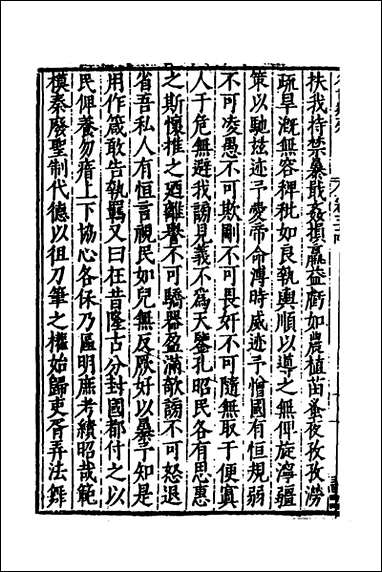 扶我持禁暴戢姦損羸益虧如農植苗蚤夜孜孜澇
疏旱漑無容稗秕如良執輿順以導之無俾旋濘疆
策以馳玆迹予愛帝命溥時威迹予憎國有恒規弱
不可凌愚不可欺剛不可畏奸不可隨無取于便寘
人于危無避我謗見義不為天鑒孔昭民各有思惠
之斯懷雅之迺離譽不可驕器盈滿欹謗不可怒退
省吾私人有恒言視民如兒無反厥好以暴予知是
用作箴敢告執羈又曰在昔隆古分封國都付之以
民俾養勿瘠上下協心各保乃區明庶考績昭哉範
模秦廢聖制代德以徂刀筆之權始歸吏胥弄法舞